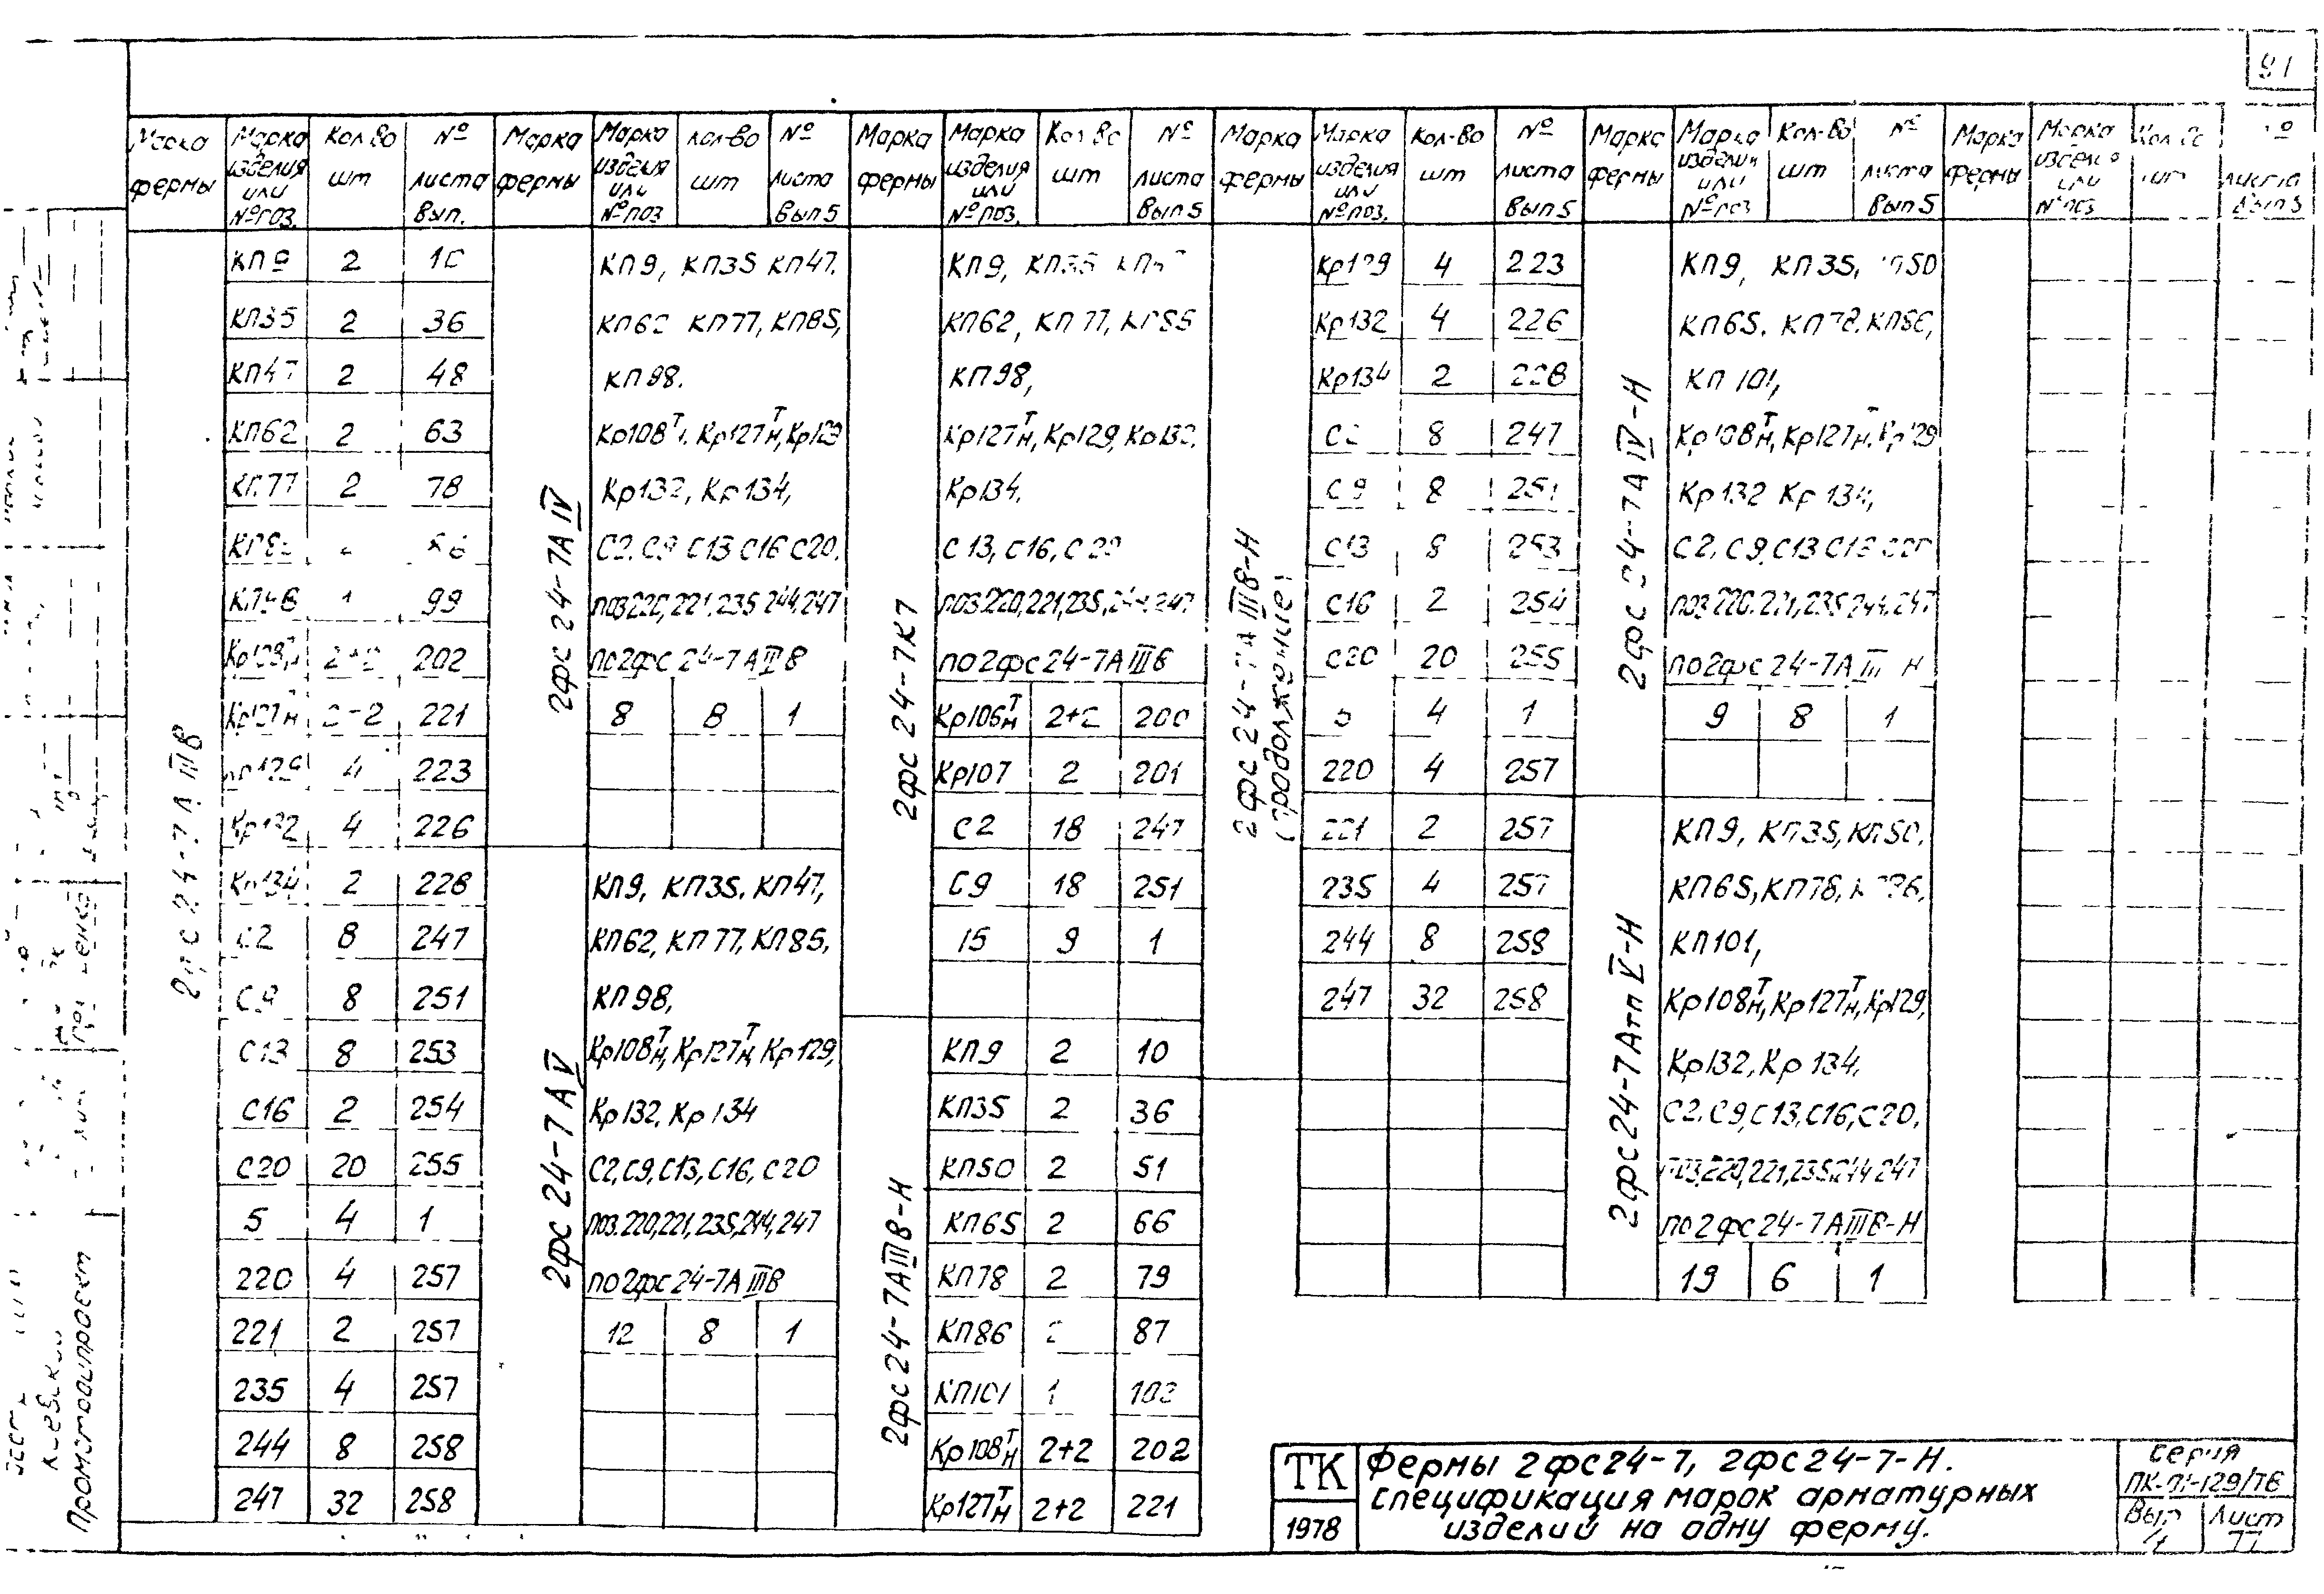 91
Марка фермы | Марка изделия или № поз. | Кол-во шт | № листа вып.
2фс24-7АIIIв
КП9 2 10
КП35 2 36
КП47 2 48
КП62 2 63
КП77 2 78
КП98 1 99
202
Кр127тн 2+2 221
Кр129 4 223
Кр132 4 226
Кр134 2 228
С2 8 247
С9 8 251
С13 8 253
С16 2 254
С20 20 255
5 4 1
220 4 257
221 2 257
235 4 257
244 8 258
247 32 258
Марка фермы | Марка изделия или № поз | кол-во шт | № листа Вып 5
2фс 24-7АIV
КП9, КП35 КП47.
КП62 КП77, КП85,
КП98.
Кр108тн, Кр127тн, Кр129
Кр132, Кр134,
С2, С9 С13 С16 С20.
поз 220, 221, 235 244, 247
по2фс 24-7АIIIв
8 8 1
2фс 24-7 АV
КП9, КП35, КП47,
КП62, КП77, КП85,
КП98,
Кр108тн, Кр127тн, Кр129,
Кр132, Кр134
С2, С9, С13, С16, С20
поз. 220, 221, 235, 244, 247
по2фс 24-7АIIIв
12 8 1
Марка фермы | Марка изделия или № поз. | Кол-во шт | № листа Вып 5
2фс 24-7К7
КП9, КП35 КП47
КП62, КП77, КП85
КП98,
Кр127тн, Кр129, Кр132,
Кр134,
С13, С16, С20
поз. 220, 221, 235, 244, 247
по2фс 24-7АIIIв
Кр106тн 2+2 200
Кр107 2 201
С2 18 247
С9 18 251
15 9 1
2фс24-7АIIIв-Н
КП9 2 10
КП35 2 36
КП50 2 51
КП65 2 66
КП78 2 79
КП86 2 87
КП101 1 102
Кр108тн 2+2 202
Кр127тн 2+2 221
Марка фермы | Марка изделия или № поз. | Кол-во шт | № листа Вып 5
2фс 24-7АIIIв-Н
(продолжение)
Кр129 4 223
Кр132 4 226
Кр134 2 228
С2 8 247
С9 8 251
С13 8 253
С16 2 254
С20 20 255
5 4 1
220 4 257
221 2 257
235 4 257
244 8 258
247 32 258
Марка фермы | Марка изделия или № поз | Кол-во шт | № листа Вып 5
2фс 24-7АIV-Н
КП9, КП35, КП50
КП65, КП78, КП86,
КП101,
Кр108тн, Кр127тн, Кр129
Кр132 Кр134,
С2, С9, С13 С16 С20
поз. 220, 221, 235 244, 247
по2фс 24-7АIII Н
9 8 1
2фс24-7АтпV-Н
КП9, КП35, КП50,
КП65, КП78, КП86,
КП101,
Кр108тн, Кр127тн, Кр129,
Кр132, Кр134,
С2, С9, С13, С16, С20,
поз. 220, 221, 235, 244 247
по2фс24-7АIIIв-Н
19 6 1
Марка фермы | Марка изделия или № поз | Кол-во шт | № листа Вып 5
ТК
1978
Фермы 2фс24-7, 2фс24-7-Н.
Спецификация марок арматурных
изделий на одну ферму.
Серия
Вып
Лист
Промстройпроект